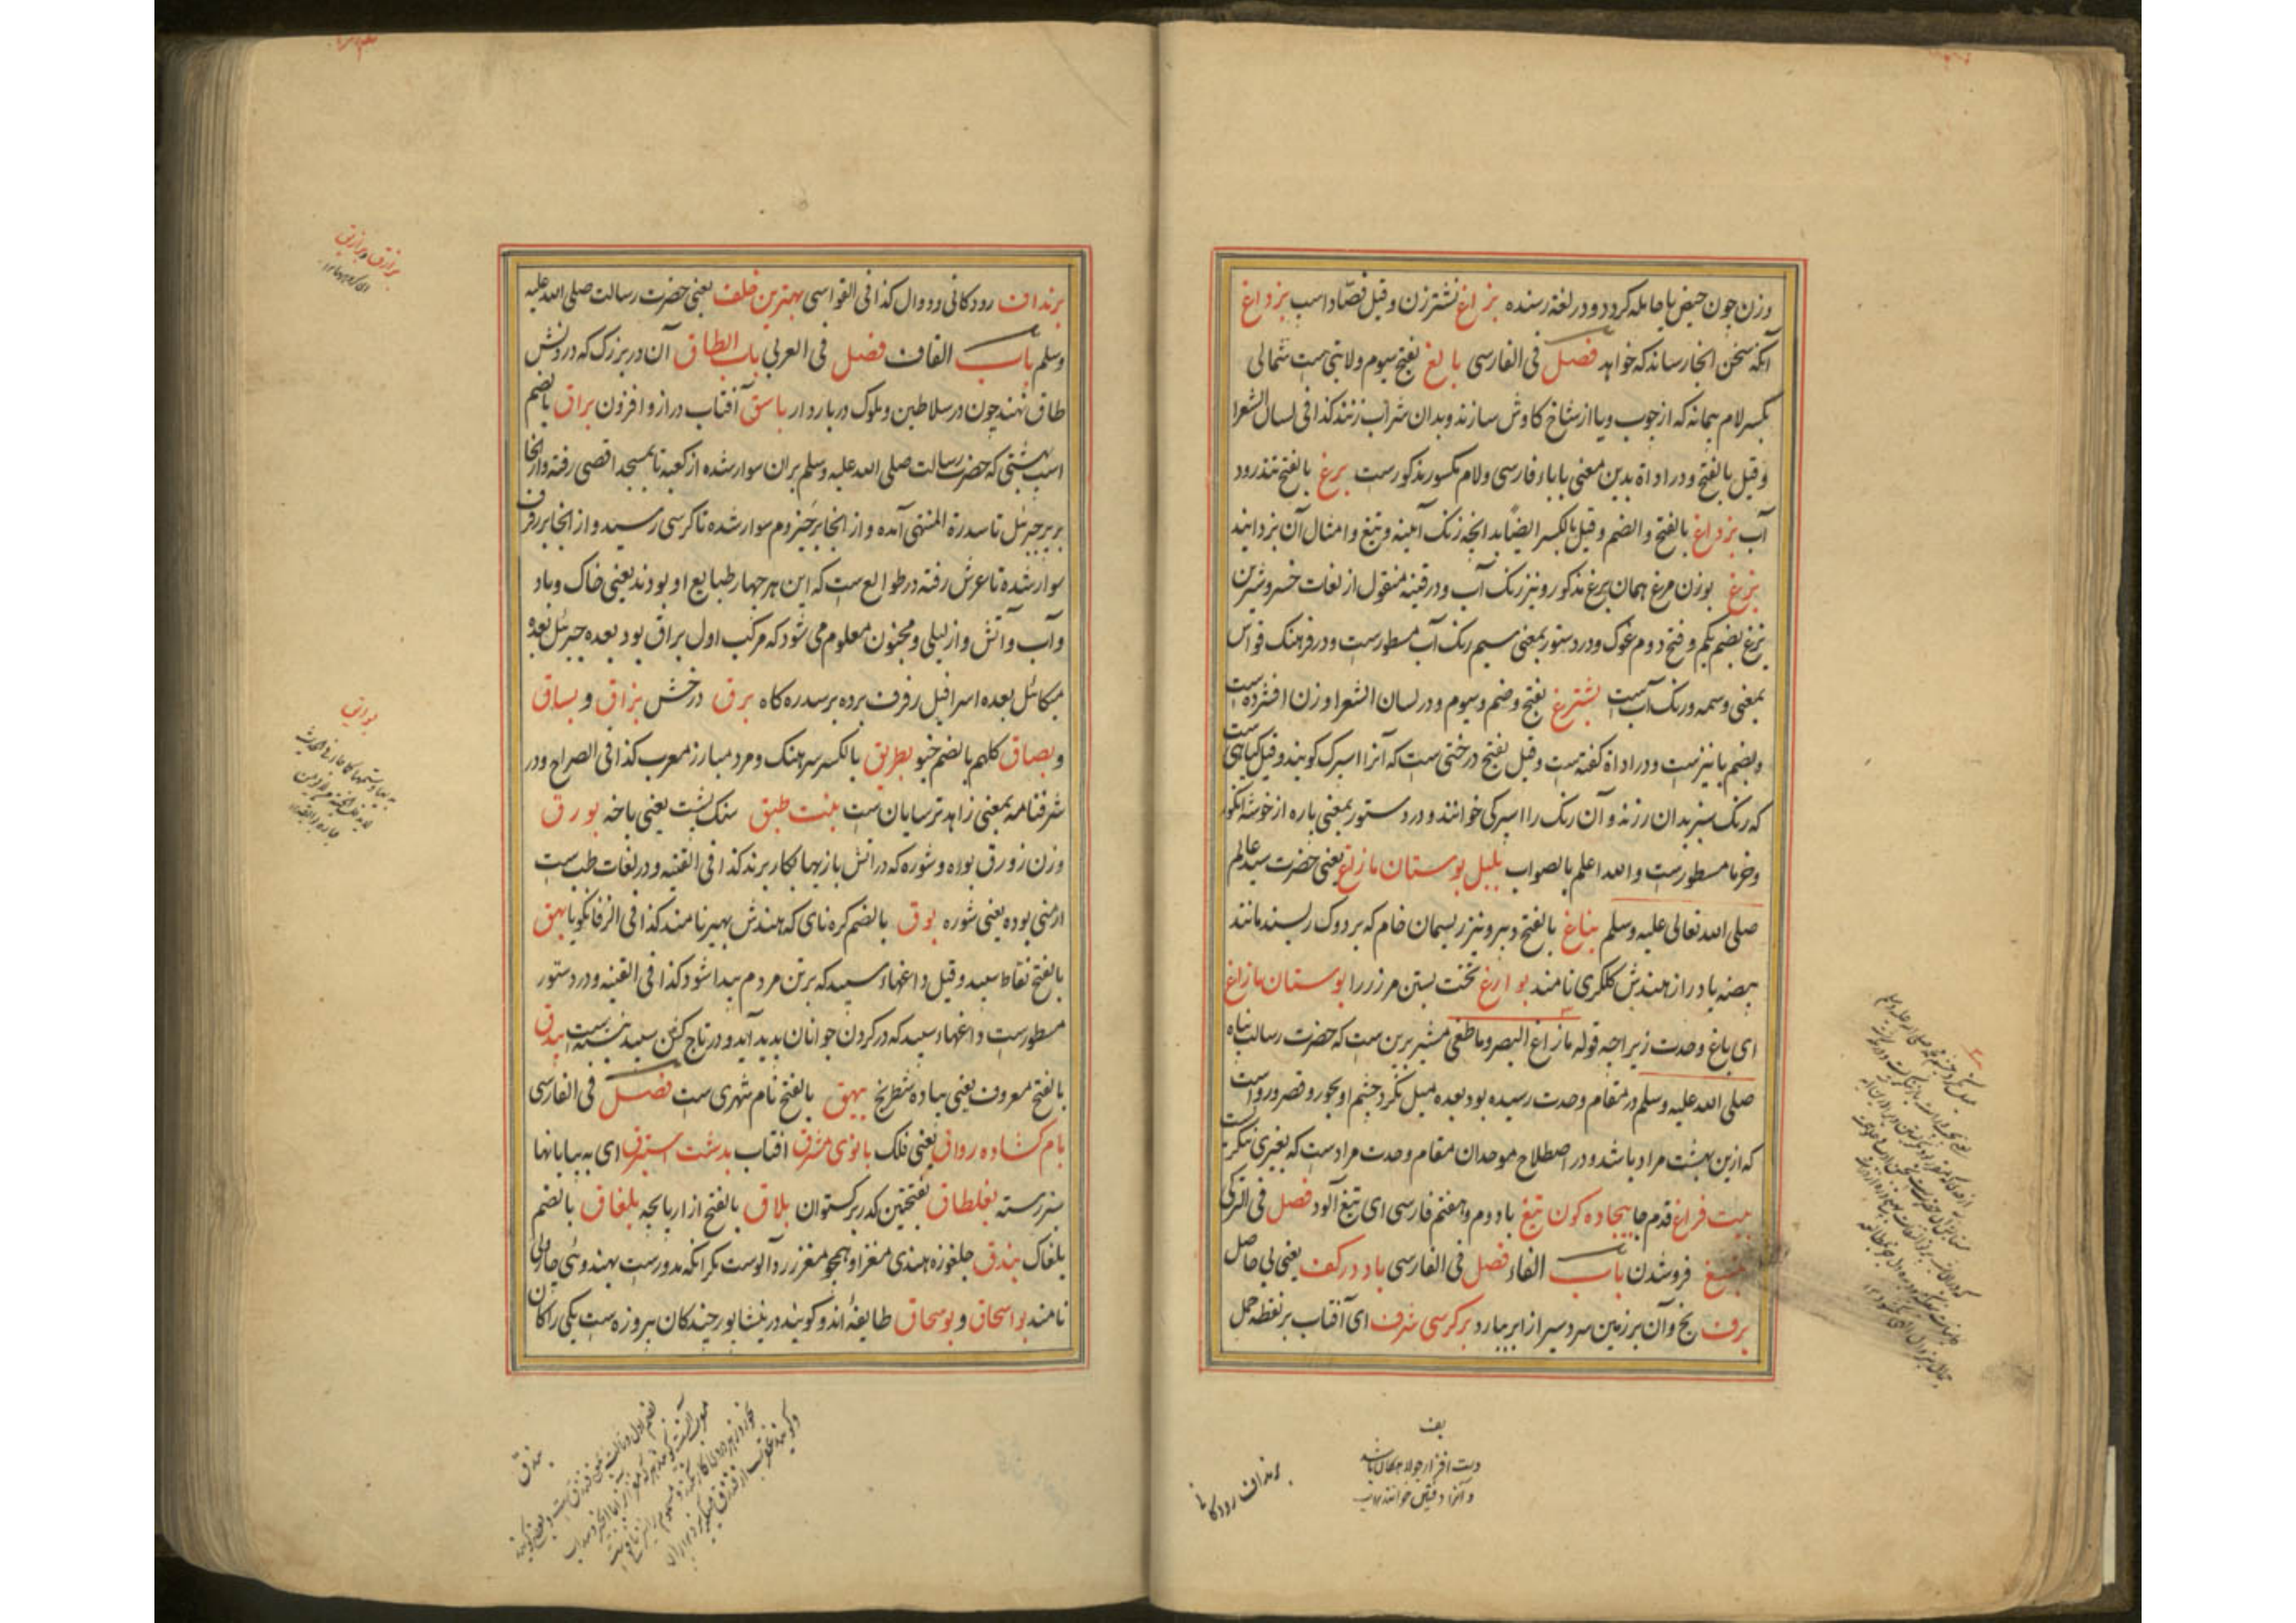 وزن چون حیض با حامله کردد و در لغة رسنده بزاغ نشتر زن و قیل فصّاد اسب بزداغ
آنکه سخن انجا رساند که خواهد فصل فی الفارسی بالغ بفتح سیوم ولایتی هست شمالی
بکسر لام پیمانه که از چوب و یا از شاخ کاوش سازند و بدان شراب زنند کذا فی لسان الشعرا
و قیل بالفتح و در اداة بدین معنی با باء فارسی و لام مکسور مذکورست برغ بالفتح تند رود
آب بزداغ بالفتح و الضم و قیل بالکسر ایضا بد انچه زنک آینه و تیغ و امثال آن بزدایند
بزغ بوزن مرغ همان برغ مذکور و نیز رنک آب و در قینه منقول از لغات خسرو شیرین
بزغ بضم یکم و فتح دوم غوک و در دستور بمعنی سیم رنک آب مسطورست و در فرهنک قواس
بمعنی وسمه و رنک آبست بشترغ بفتح و ضم و سیوم و در لسان الشعرا وزن افشرده است
و بضم با نیزست و در اداة کفته است و قیل بفتح درختی ست که آنرا اسپرک کویند و قیل کیاهی ست
که رنک سبز بدان رزند و آن رنک را اسپرکی خوانند و در دستور بمعنی پاره از خوشه انکور
و خرما مسطورست و الله اعلم بالصواب بلبل بوستان مازاغ یعنی حضرت سید عالم
صلی الله تعالی علیه وسلم بناغ بالفتح دبیر و نیز ریسمان خام که بر دوک ریسند مانند
بیضه یا دراز هندش کلکری نامند بوارغ تخت بستن مرز را بوستان مازاغ
ای باغ وحدت زیراچه قوله مازاغ البصر وما طغی مشیر برین ست که حضرت رسالت پناه
صلی الله علیه وسلم در مقام وحدت رسیده بود بعده میل نکرد چشم او بحور و قصور و رواست
که ازین بهشت مراد باشد و در اصطلاح موحدان مقام وحدت مرادست که بغیری ننکرست
بیت فراغ قدم جا بیجاده کون تیغ با دوم و هفتم فارسی ای تیغ آلود فصل فی الترکی
فرو شدن باب الفاء فصل فی الفارسی باد در کف یعنی بی حاصل
برف یخ و آن بر زمین سردسیر از ابر ببارد بر کرسی شرف ای آفتاب بر نقطه حمل
بف
دست افزار جولاهکان باشد
و آنرا دفتین خوانند
برنداف رودکانی
برنداف رودکانی و دوال کذا فی القواسی بهترین خلف یعنی حضرت رسالت صلی الله علیه
وسلم باب القاف فصل فی العربی باب الطاق آن در بزرک که درونش
طاق نهند چون در سلاطین و ملوک دربار دار باسق آفتاب دراز و افزون براق بالضم
اسب بهشتی که حضرت رسالت صلی الله علیه وسلم بران سوار شده از کعبه تا بمسجد اقصی رفته و از انجا
بر پر جبرئیل تا سدرة المنتهی آمده و از انجا بر حیزوم سوار شده تا کرسی رسید و از انجا بر رفرف
سوار شده تا عرش رفته در طوالع ست که این هر چهار طبایع او بودند یعنی خاک و باد
و آب و آتش و از لیلی و مجنون معلوم می شود که مرکب اول براق بود بعده جبرئیل بعده
میکائل بعده اسرافیل رفرف برده بر سدره کاه برق درخش بزاق و بساق
و بصاق کلهم بالضم خیو بطریق بالکسر سرهنک و مرد مبارز معرب کذا فی الصراح و در
شرفنامه بمعنی زاهد ترسایان ست بنت طبق سنک پشت یعنی باخه بورق
وزن زورق بوره و شوره که در آتش بازیها بکار برند کذا فی القنیه و در لغات طب ست
ارمنی بوده یعنی شوره بوق بالضم کره نای که هندش بهیر نامند کذا فی الزفانکویا بهق
بالفتح نقاط سپید و قیل داغهاء سپید که بر تن مردم پیدا شود کذا فی القنیه و در دستور
مسطورست داغهاء سپید که در کردن جوانان پدید آید و در تاج کنن سپید نیز بیست بیدق
بالفتح معروف یعنی پیاده شطرنج بیهق بالفتح نام شهری ست فصل فی الفارسی
بام کشاده رواق یعنی فلک بانوی مشرق آفتاب بدشت استبرق ای به بیابانها
سبز رسته بغلطاق بفتحتین کدر برکستوان بلاق بالفتح ازار پایچه بلغاق بالضم
بلغاک بندق جلغوزه هندی مغز او همچو مغز زردآلوست مکر آنکه مدورست بهندوئی چارولی
نامند بواسحاق و بوسحاق طایفهٔ اند و کویند در نیشابور چند کان پیروزه ست یکی را کان
برازق و برازیق
بوایق
بندق